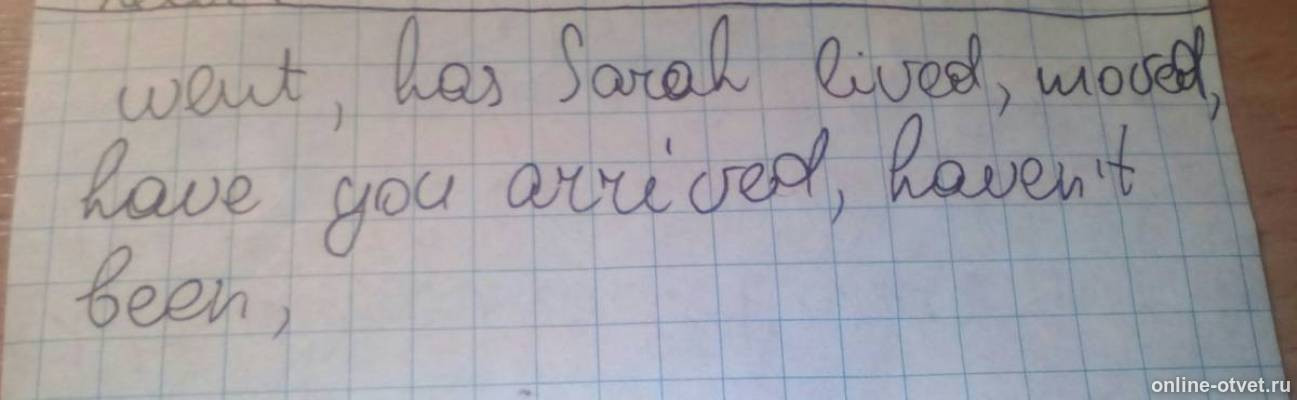 went, has Sarah lived, moved,
have you arrived, haven't
been,
online-otvet.ru